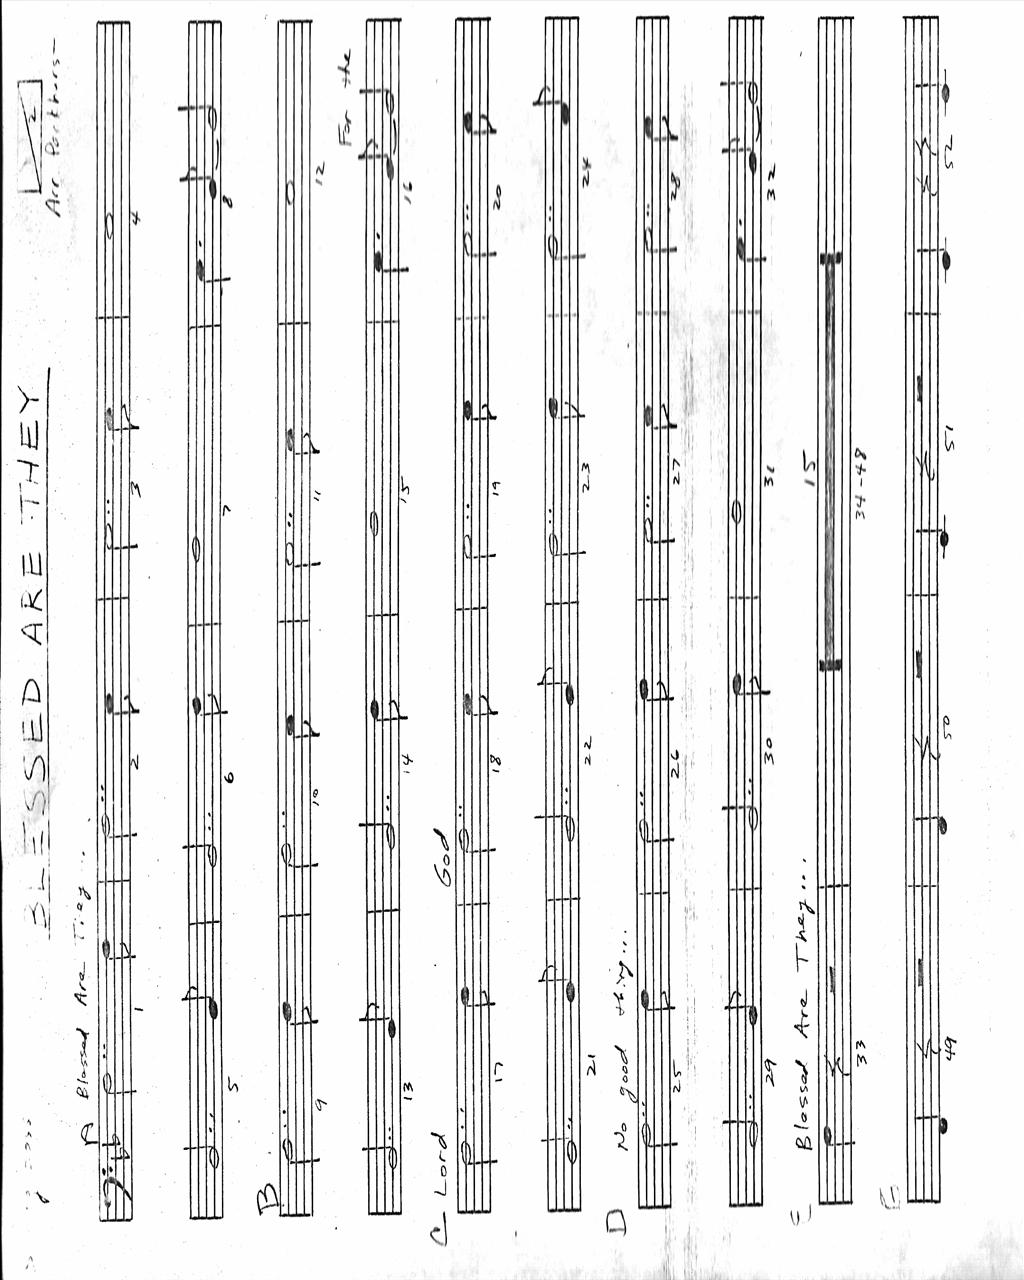 BLESSED ARE THEY
2
Are
A Blessed Are They...
1 2 3 4
5 6 7 8
B
9 10 11 12
For the
13 14 15 16
C Lord God
17 18 19 20
21 22 23 24
D No good thing...
25 26 27 28
29 30 31 32
E Blessed Are They... 15
33 34-48
49 50 51 52